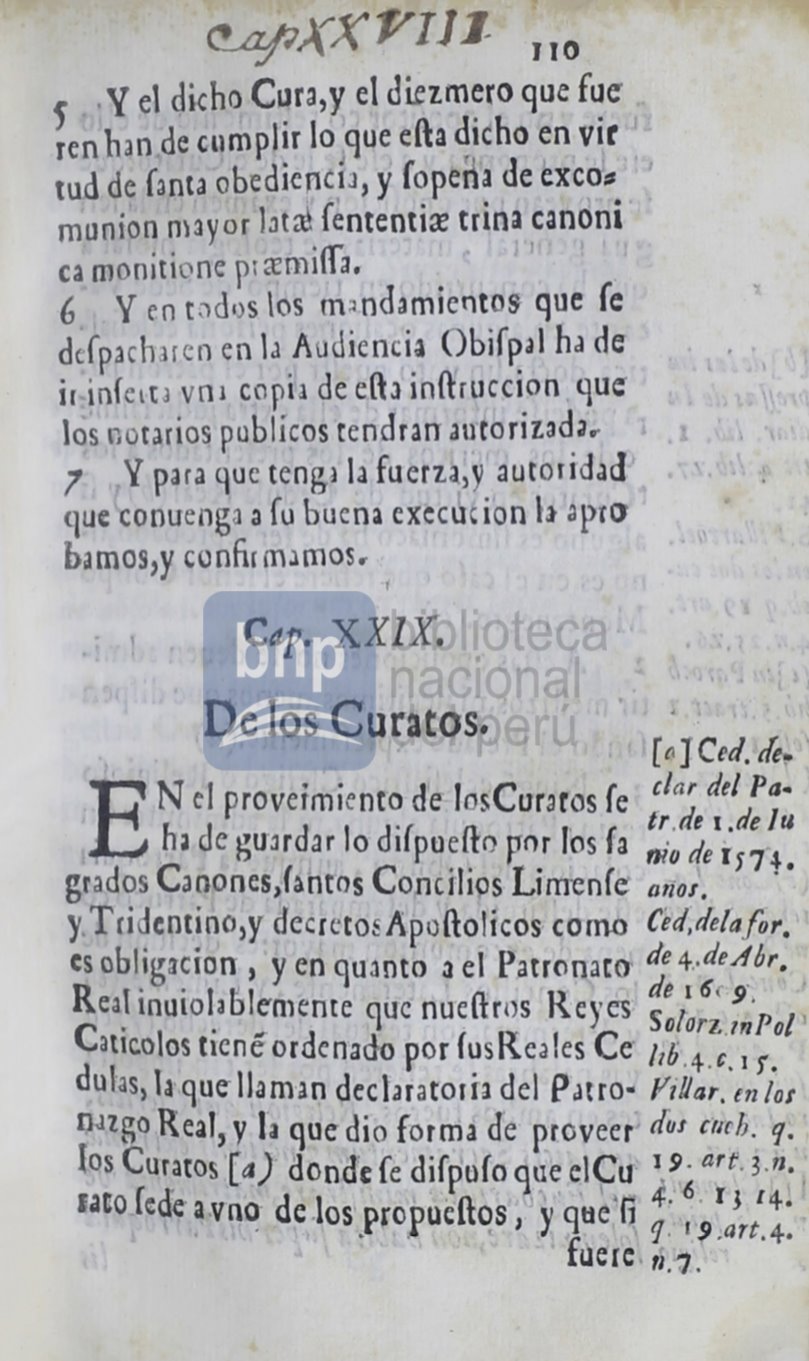 CapXXVIII
110
5 Y el dicho Cura,y el diezmero que fue
ren han de cumplir lo que eſta dicho en vir
tud de ſanta obediencia, y ſopena de exco-
munion mayor latæ ſententiæ trina canoni
ca monitione præmiſſa.
6 Y en todos los mandamientos que ſe
deſpacharen en la Audiencia Obiſpal ha de
ir inſerta vna copia de eſta inſtruccion que
los notarios publicos tendran autorizada.
7 Y para que tenga la fuerza,y autoridad
que conuenga a ſu buena execucion la apro
bamos,y confirmamos.
Cap. XXIX.
bnp biblioteca
nacional
del perú
De los Curatos.
EN el proveimiento de losCuratos ſe
ha de guardar lo diſpueſto por los ſa
grados Canones,ſantos Concilios Limenſe
y Tridentino,y decretos Apoſtolicos como
es obligacion , y en quanto a el Patronato
Real inuiolablemente que nueſtros Reyes
Caticolos tienẽ ordenado por ſusReales Ce
dulas, la que llaman declaratoria del Patro-
nazgo Real, y la que dio forma de proveer
los Curatos [a) donde ſe diſpuſo que el Cu
rato ſede a vno de los propueſtos, y que ſi
fuere
[a] Ced. de-
clar del Pa-
tr. de 1. de Iu
nio de 1574.
años.
Ced, de la for.
de 4. de Abr.
de 16 9.
Solorz. in Pol
lib. 4. c. 15.
Villar. en los
dos cuch. q.
19. art. 3. n.
4. 6. 13 14.
q 19. art. 4.
n. 7.